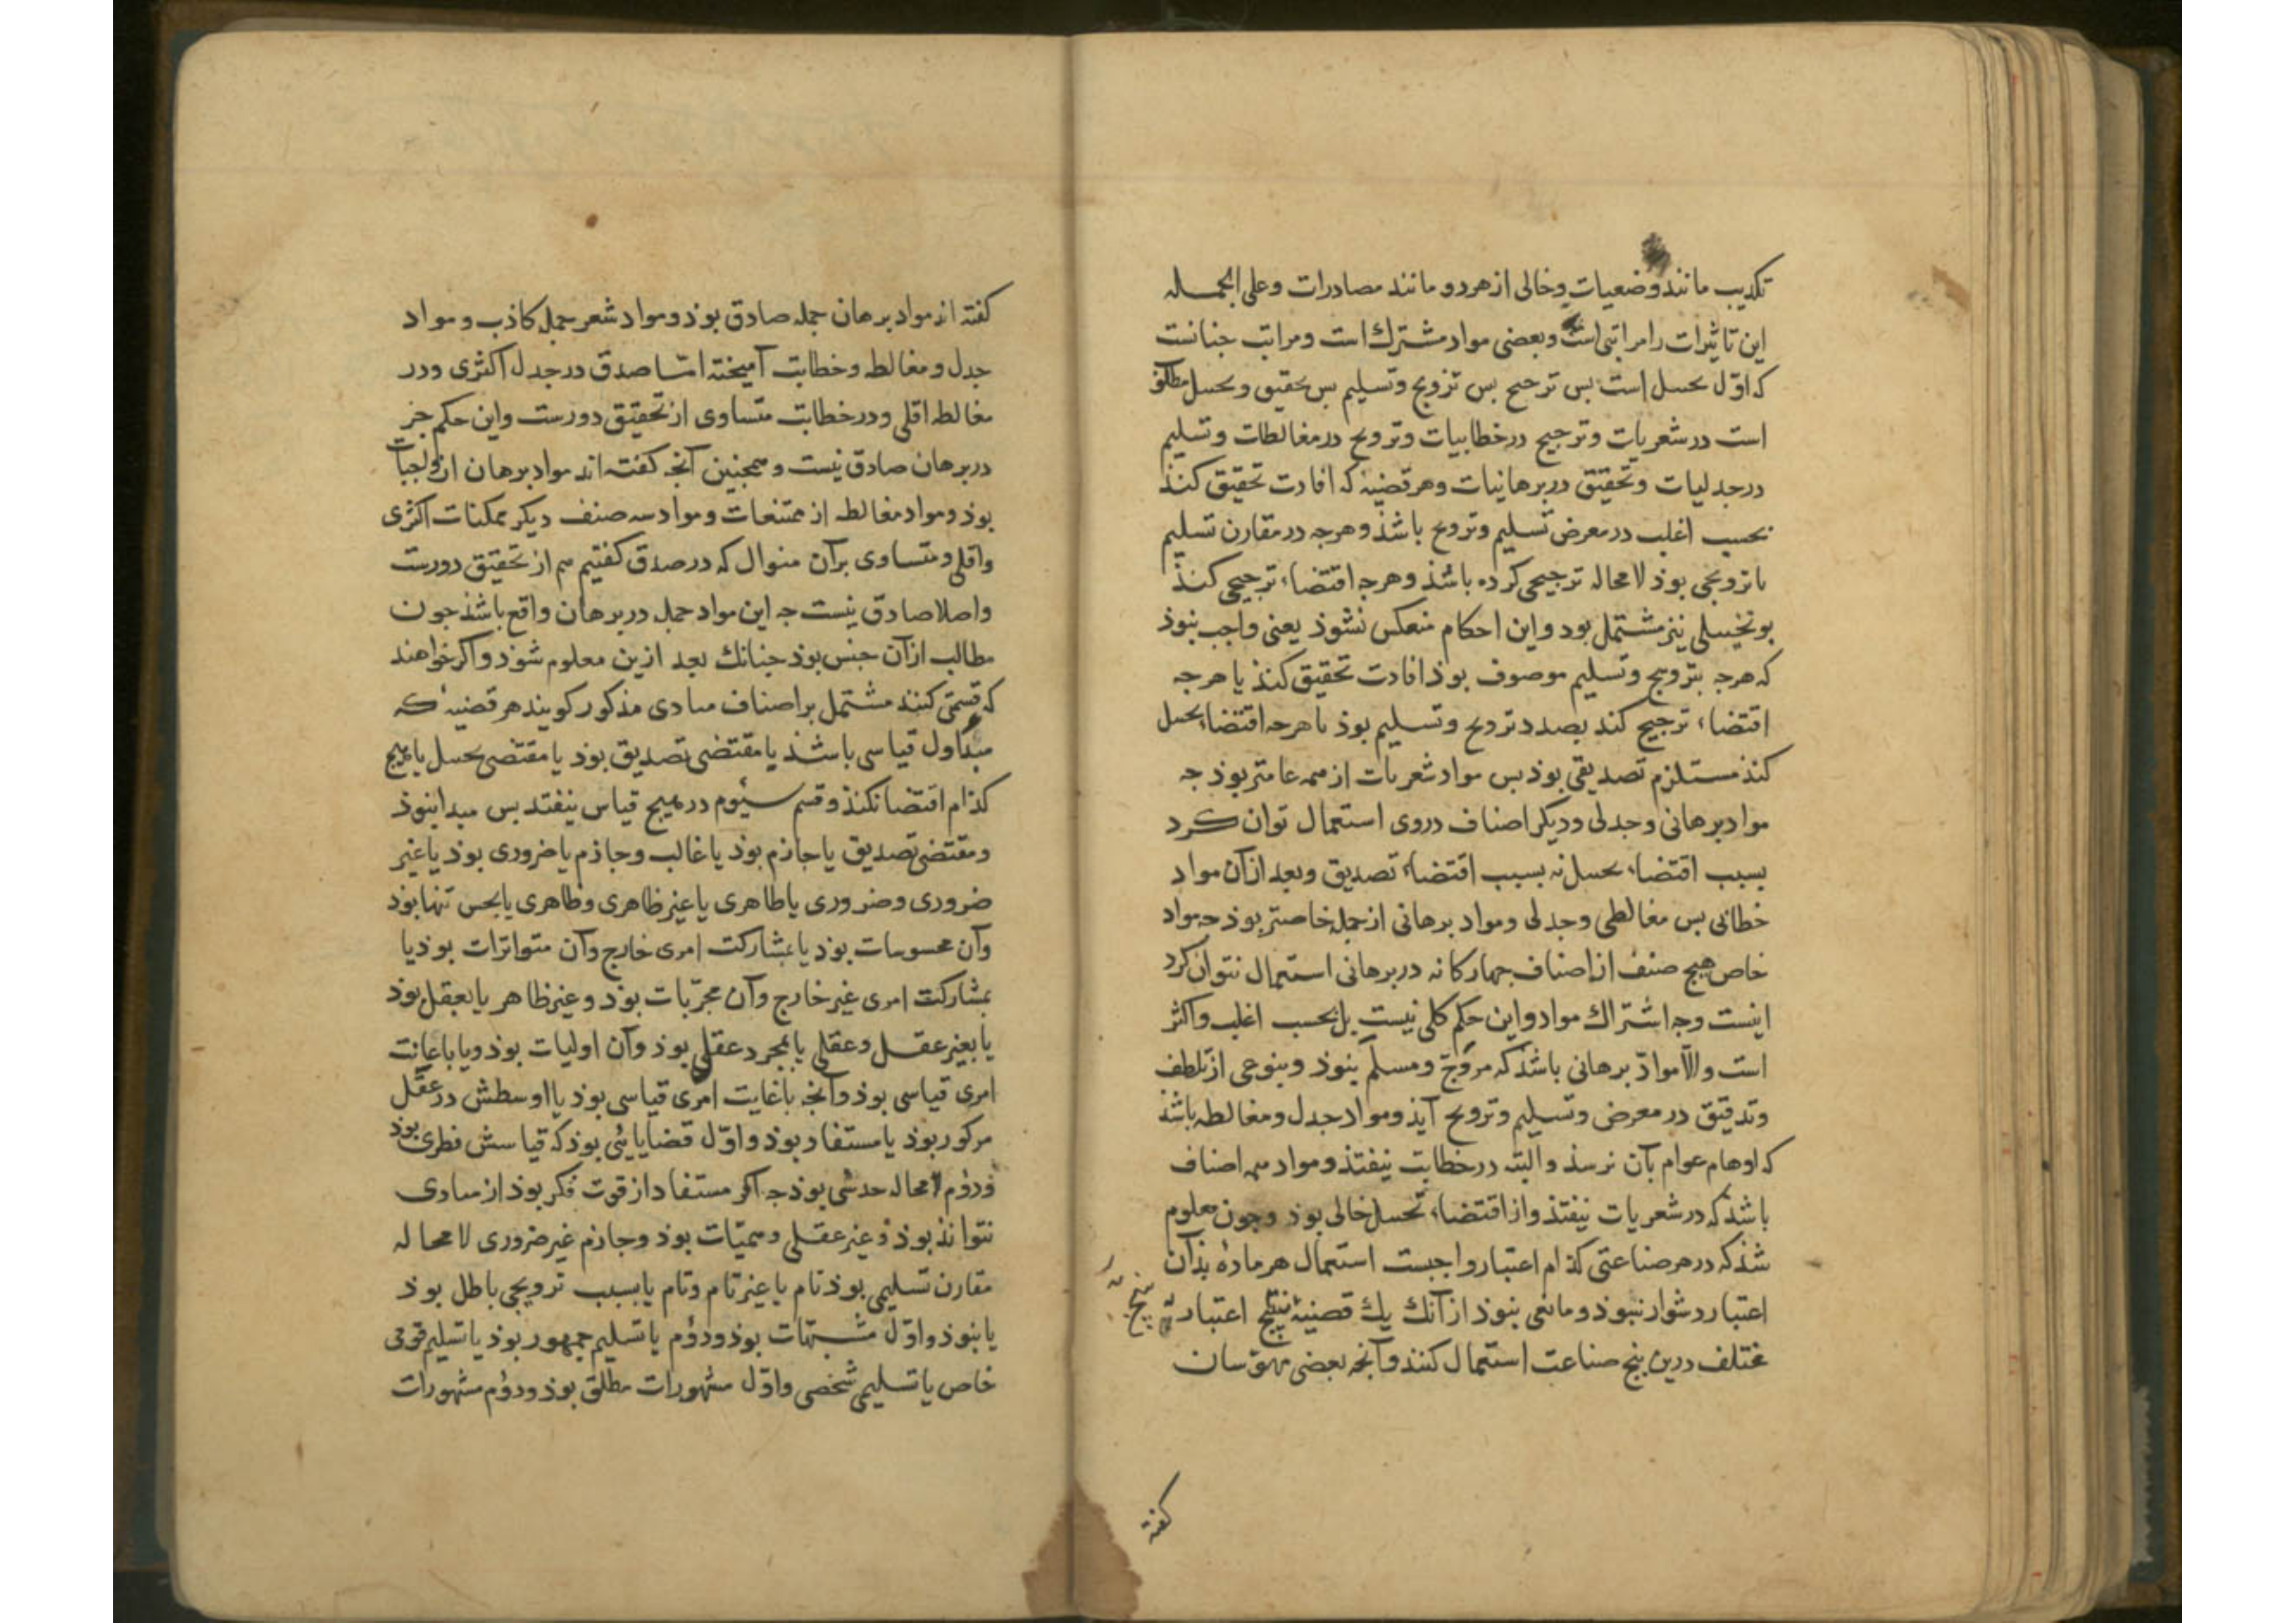 تکذیب مانند وضعیات وخالی ازهردو مانند مصادرات وعلی الجمله
این تاثیرات را مراتبی است وبعضی مواد مشترك است ومراتب جنانست
که اوّل تخییل است بس ترجیح بس ترویج وتسلیم بس تحقیق وتخییل مطلق
است درشعریات وترجیح درخطابیات وترویج درمغالطات وتسلیم
درجدلیات وتحقیق دربرهانیات وهرقضیهٔ که افادت تحقیق کنذ
بحسب اغلب درمعرض تسلیم وترویج باشذ وهرجه درمقارن تسلیم
یا ترویجی بوذ لامحاله ترجیحی کرده باشذ وهرجه اقتضاء ترجیحی کنذ
بر تخییلی نیز مشتمل بود واین احکام منعکس نشوذ یعنی واجب نبوذ
که هرجه بترویج وتسلیم موصوف بوذ افادت تحقیق کنذ یا هرجه
اقتضاء ترجیح کند بصدد ترویج وتسلیم بوذ یا هرجه اقتضاء تخییل
کنذ مستلزم تصدیقی بوذ بس مواد شعریات ازهمه عامتر بوذ جه
مواد برهانی وجدلی ودیکر اصناف دروی استعمال توان کرد
بسبب اقتضاء تخییل نه بسبب اقتضاء تصدیق وبعد ازآن مواد
خطابی بس مغالطی وجدلی ومواد برهانی ازجمله خاصتر بوذ جه مواد
خاص هیج صنف ازاصناف جهارکانه دربرهانی استعمال نتوان کرد
اینست وجه اشتراك مواد واین حکم کلی نیست بل بحسب اغلب واکثر
است والّا موادّ برهانی باشذ که مروّج ومسلّم نبوذ وبنوعی ازتلطف
وتدقیق درمعرض وتسلیم وترویج آیذ ومواد جدل ومغالطه باشذ
که اوهام عوام بآن نرسذ والبته درخطابت نیفتذ ومواد همه اصناف
باشذ که درشعریات نیفتذ وازاقتضاء تخییل خالی بوذ وجون معلوم
شذ که درهرصناعتی کذام اعتبار واجبست استعمال هرمادهٔ بذآن
اعتبار دشوار نبوذ ومانعی نبوذ ازآنك یك قضیهٔ بنج اعتبار
مختلف درین بنج صناعت استعمال کنند وآنجه بعضی مهوّسان
بنج
کفته
کفته اند مواد برهان جمله صادق بوذ ومواد شعر جمله کاذب ومواد
جدل ومغالطه وخطابت آمیخته امّا صدق درجدل اکثری ودر
مغالطه اقلی ودرخطابت متساوی ازتحقیق دورست واین حکم جز
دربرهان صادق نیست وهمجنین آنجه کفته اند مواد برهان ازواجبات
بوذ ومواد مغالطه ازممتنعات ومواد سه صنف دیکر ممکنات اکثری
واقلی ومتساوی برآن منوال که درصدق کفتیم هم ازتحقیق دورست
واصلا صادق نیست جه این مواد جمله دربرهان واقع باشذ جون
مطالب ازآن جنس بوذ جنانك بعد ازین معلوم شوذ واکر خواهند
که قسمتی کنند مشتمل براصناف مبادی مذکور کویند هرقضیهٔ که
مبدأ اول قیاسی باشذ یا مقتضی تصدیق بوذ یا مقتضی تخییل یا هیج
کذام اقتضا نکنذ وقسم سیوم درهیج قیاس نیفتد بس مبدا نبوذ
ومقتضی تصدیق یا جازم بوذ یا غالب وجازم یا ضروری بوذ یا غیر
ضروری وضروری یا ظاهری یا غیرظاهری وظاهری یا بحس تنها بوذ
وآن محسوسات بوذ یا بمشارکت امری خارج وآن متواترات بوذ یا
بمشارکت امری غیرخارج وآن مجرّبات بوذ وغیرظاهر یا بعقل بوذ
یا بغیر عقل وعقلی یا بمجرد عقلی بوذ وآن اولیات بوذ ویا باعانت
امری قیاسی بوذ وآنجه باغایت امری قیاسی بوذ یا اوسطش درعقل
مرکوز بوذ یا مستفاد بوذ واوّل قضایایئی بوذ که قیاسش فطری بوذ
ودوّم لامحاله حدسی بوذ جه اکر مستفاد ازقوت فکر بوذ ازمبادی
نتوانذ بوذ وغیرعقلی وهمیّات بوذ وجازم غیرضروری لامحاله
مقارن تسلیمی بوذ تام یا غیرتام وتام یا بسبب ترویجی باطل بوذ
یا نبوذ واوّل مشبهات بوذ ودوّم یا تسلیم جمهور بوذ یا تسلیم قومی
خاص یا تسلیمی شخصی واوّل مشهورات مطلق بوذ ودوّم مشهورات